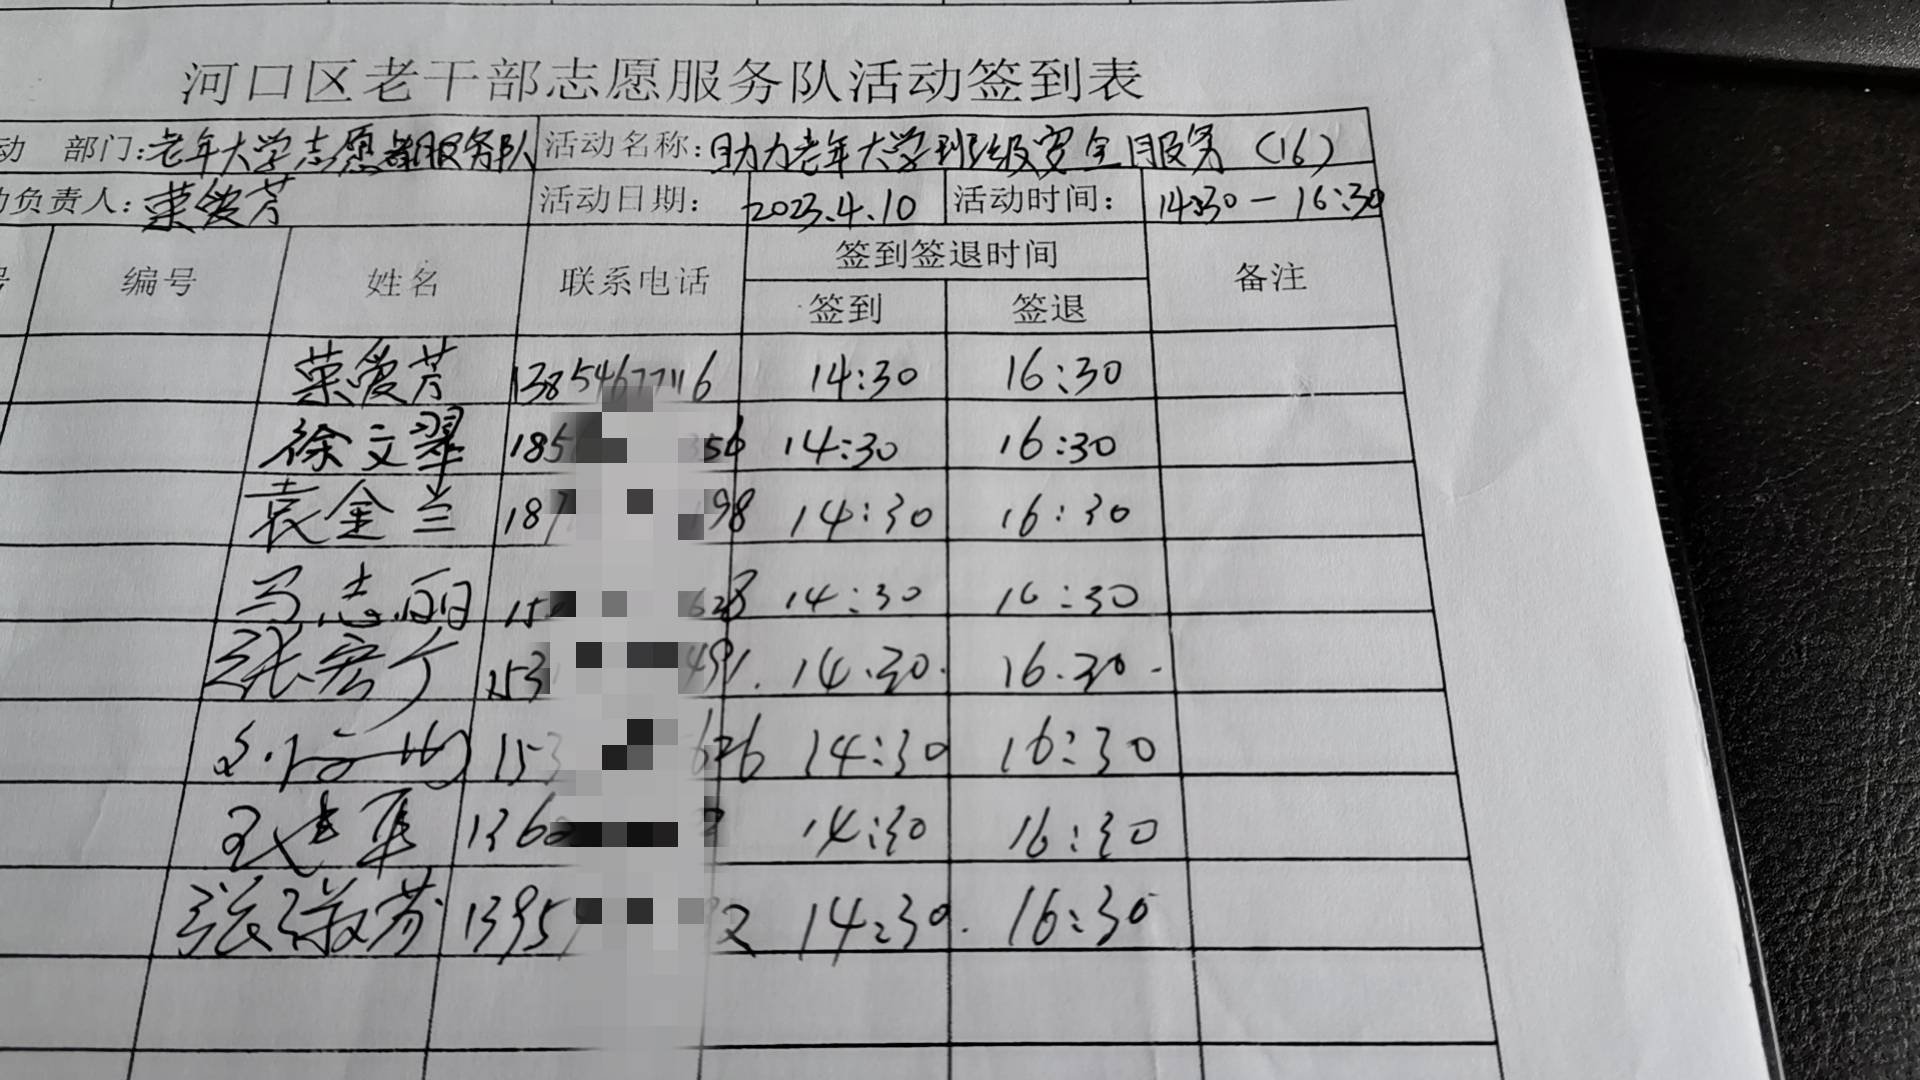 河口区老干部志愿服务队活动签到表
动 部门:老年大学志愿者服务队 活动名称:助力老年大学班级安全服务(16)
负责人:荣爱芳 活动日期: 2023.4.10 活动时间: 14:30-16:30
号 编号 姓名 联系电话 签到签退时间 备注
签到 签退
荣爱芳 14:30 16:30
徐文翠 185 356 14:30 16:30
袁金兰 187 198 14:30 16:30
马志丽 15 628 14:30 16:30
张宏 153 491. 14.30. 16.30.
153 626 14:30 16:30
136 14:30 16:30
张淑芬 1395 2 14:30. 16:30